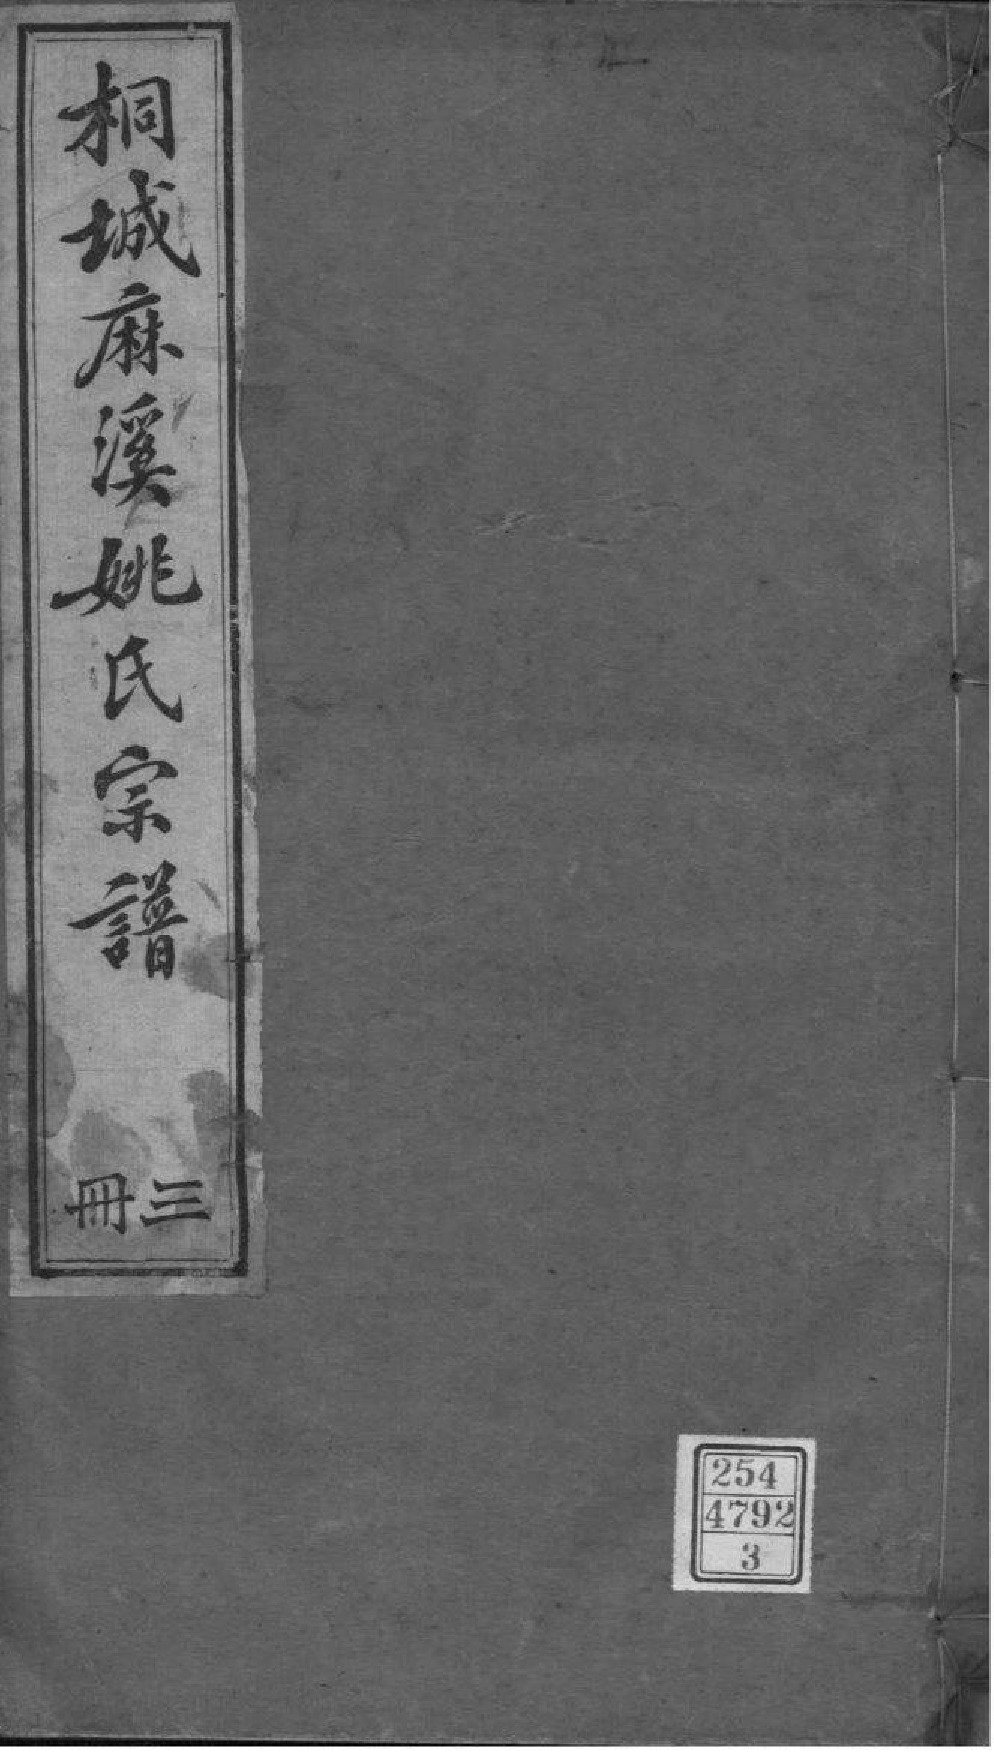 桐城麻溪姚氏宗譜
三冊
254
4792
3